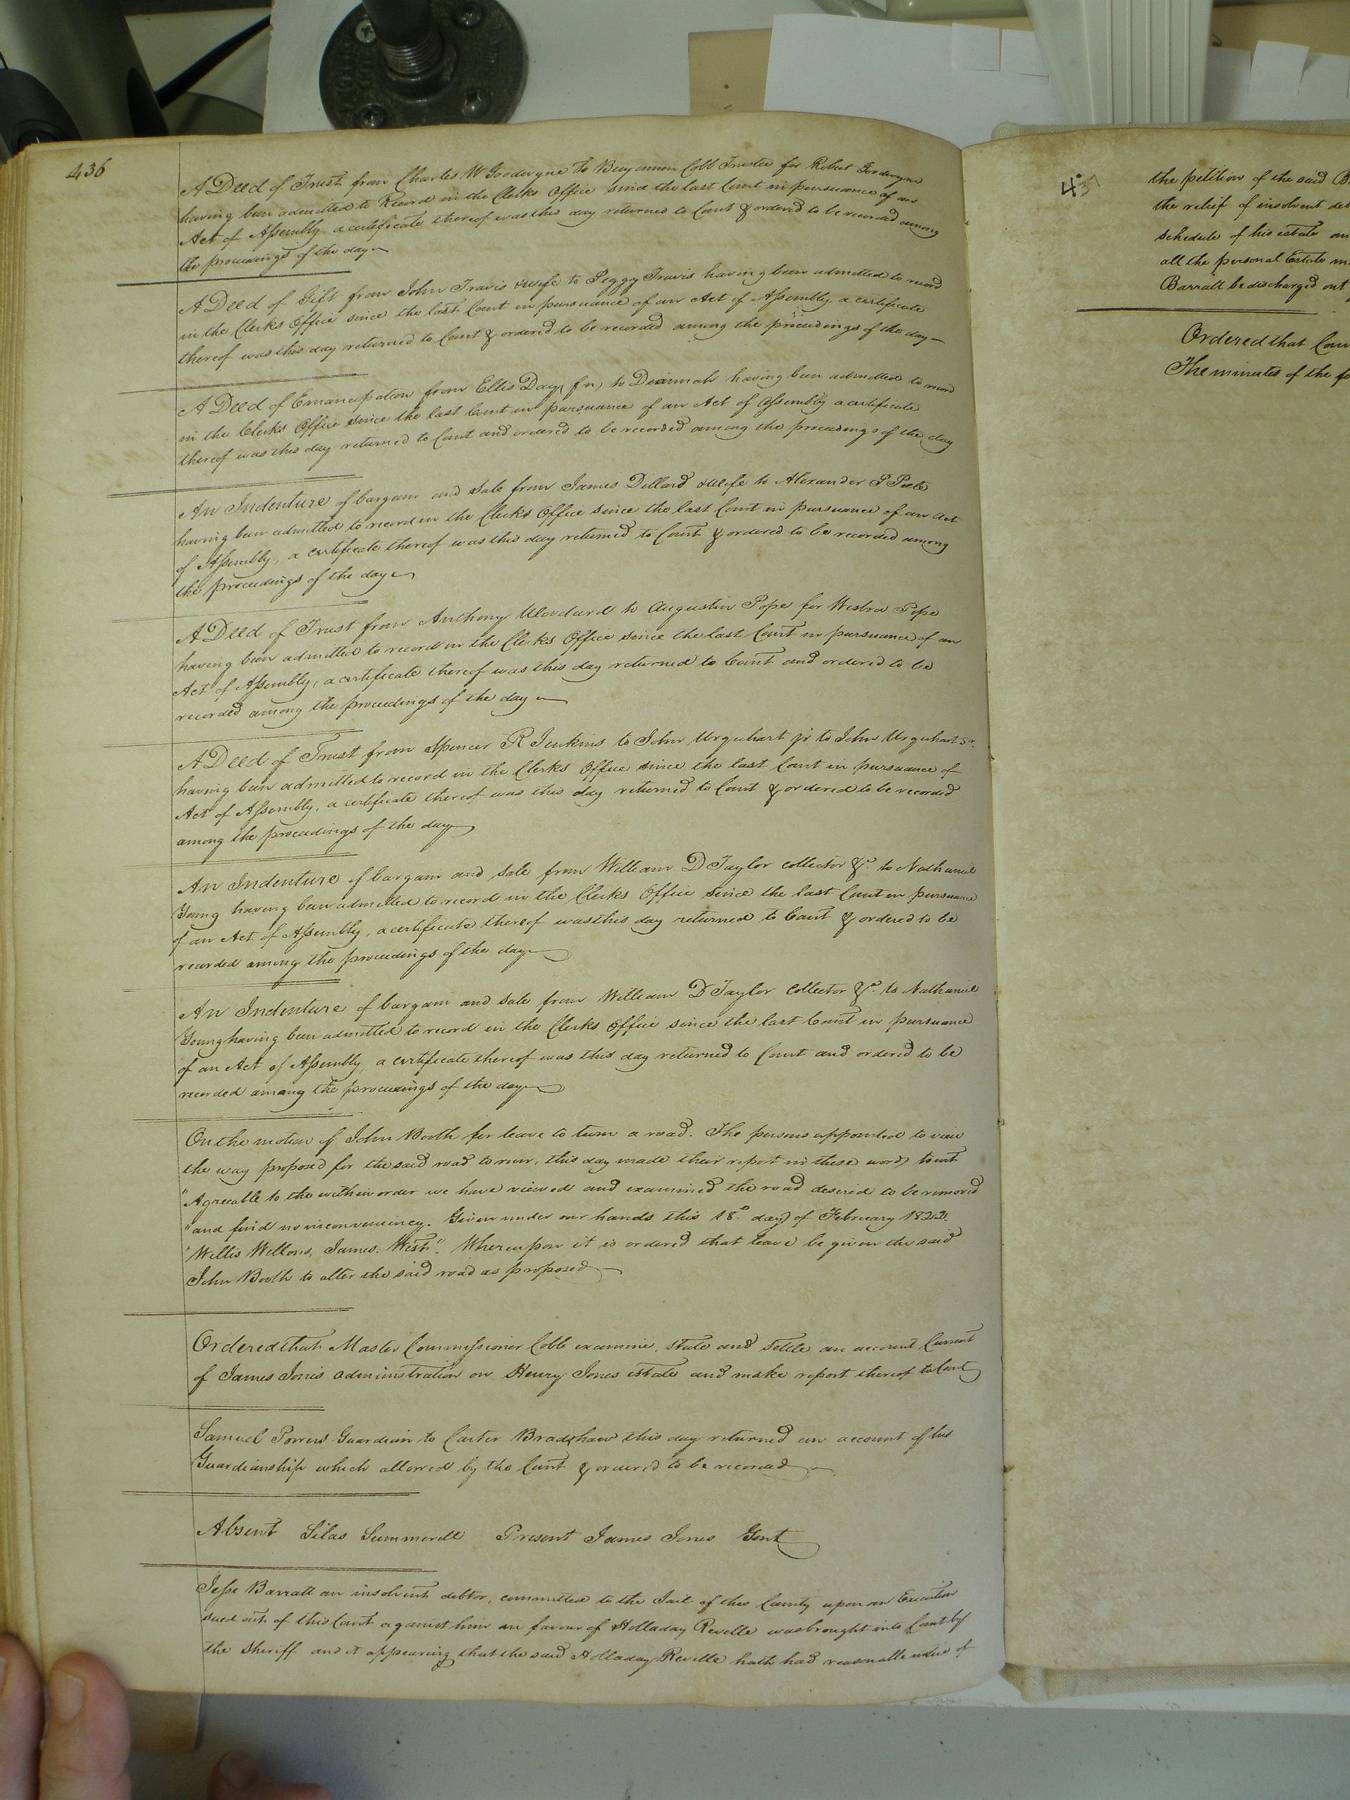 436
A Deed of Trust from Charles W Goodwyne to Benjamin Cobb Trustee for Robert Goodwyne
having been admitted to Record in the Clerks Office since the last Court in pursuance of an
Act of Assembly a certificate thereof was this day returned to Court & ordered to be recorded among
the proceedings of the day
A Deed of Gift from John Travis & wife to Peggy Travis having been admitted to record
in the Clerks Office since the last Court in pursuance of an Act of Assembly a certificate
thereof was this day returned to Court & ordered to be recorded among the proceedings of the day
A Deed of Emancipation from Ellis Day (fn) to having been admitted to record
in the Clerks Office since the last Court in pursuance of an Act of Assembly a certificate
thereof was this day returned to Court and ordered to be recorded among the proceedings of the day
An Indenture of bargain and sale from James Dillard & wife to Alexander P Peete
having been admitted to record in the Clerks Office since the last Court in pursuance of an Act
of Assembly, a certificate thereof was this day returned to Court & ordered to be recorded among
the proceedings of the day
A Deed of Trust from Anthony Woodard to Augustin Pope for Pope
having been admitted to record in the Clerks Office since the last Court in pursuance of an
Act of Assembly, a certificate thereof was this day returned to Court and ordered to be
recorded among the proceedings of the day
A Deed of Trust from Spencer R Jenkins to John Urquhart jr to John Urquhart Sr.
having been admitted to record in the Clerks Office since the last Court in pursuance of
Act of Assembly, a certificate thereof was this day returned to Court & ordered to be recorded
among the proceedings of the day
An Indenture of bargain and sale from William D Taylor collector &c. to Nathaniel
Young having been admitted to record in the Clerks Office since the last Court in pursuance
of an Act of Assembly, a certificate thereof was this day returned to Court & ordered to be
recorded among the proceedings of the day
An Indenture of bargain and sale from William D Taylor collector &c. to Nathaniel
Young having been admitted to record in the Clerks Office since the last Court in pursuance
of an Act of Assembly, a certificate thereof was this day returned to Court and ordered to be
recorded among the proceedings of the day
On the motion of John Booth for leave to turn a road. The persons appointed to view
the way proposed for the said road to run, this day made their report in these words towit
"Agreeable to the within order we have viewed and examined the road desired to be removed
"and find no inconveniency. Given under our hands this 18th day of February 1822.
"Willis Wellons, James West". Whereupon it is ordered that leave be given the said
John Booth to alter the said road as proposed
Ordered that Master Commissioner Cobb examine, state and settle an account Current
of James Jones administration on Henry Jones estate and make report thereof to Court
Samuel Powers Guardian to Carter Bradshaw this day returned an account of his
Guardianship which allowed by the Court & ordered to be recorded
Absent Silas Summerell Present James Jones Gent
Jesse Barratt an insolvent debtor, committed to the Jail of this County upon an Execution
sued out of this Court against him in favour of Holladay Revelle was brought into Court by
the Sheriff and it appearing that the said Holladay Reville hath had reasonable notice of
437
the petition of the said B
the relief of insolvent deb
schedule of his estate an
all the personal Estate m
Barratt be discharged out
Ordered that Cour
The minutes of the fo